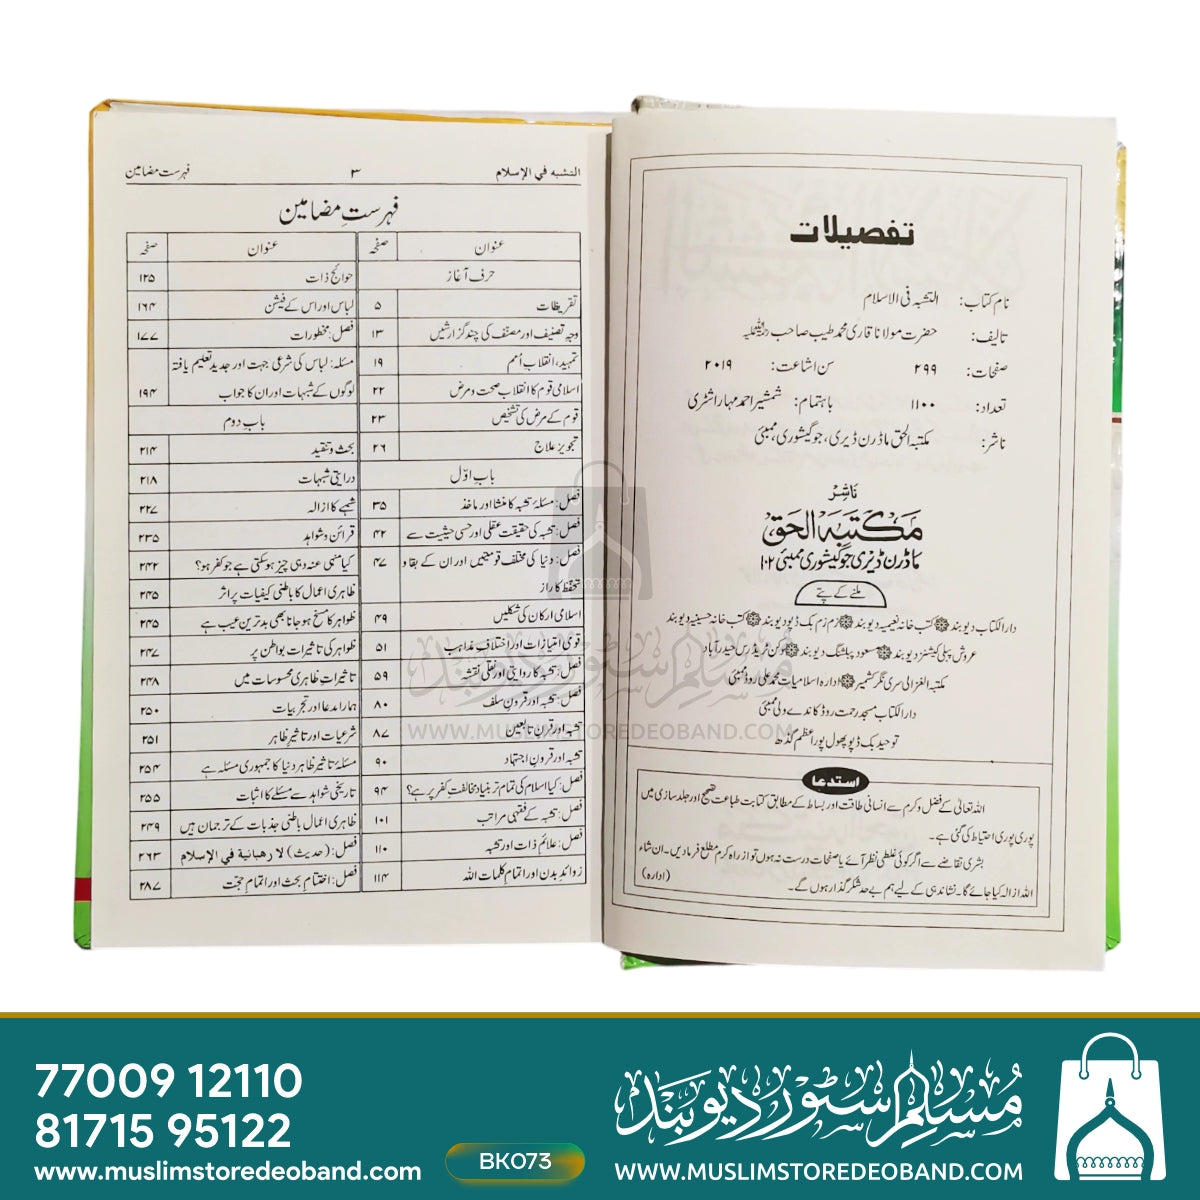 تفصیلات
نام کتاب: التشبہ فی الاسلام
تالیف: حضرت مولانا قاری محمد طیب صاحب رحمۃ اللہ علیہ
صفحات: ۲۹۹ سن اشاعت: ۲۰۱۹
تعداد: ۱۱۰۰ باہتمام: شمشیر احمد مہاراشٹری
ناشر: مکتبہ الحق ماڈرن ڈیری، جوگیشوری، ممبئی
ناشر
مکتبہ الحق
ماڈرن ڈیری جوگیشوری ممبئی ۱۰۲
ملنے کے پتے
دار الکتاب دیوبند ❁ کتب خانہ نعیمیہ دیوبند ❁ زم زم بک ڈپو دیوبند ❁ کتب خانہ حسینیہ دیوبند
عروش پبلی کیشنز دیوبند ❁ مسعود پبلشنگ دیوبند ❁ دکن ٹریڈرس حیدرآباد
مکتبہ الغزالی سری نگر کشمیر ❁ ادارہ اسلامیات محمد علی روڈ ممبئی
دار الکتاب مسجد رحمت روڈ کاندے ولی ممبئی
توحید بک ڈپو پھول پور اعظم گڈھ
استدعا
اللہ تعالی کے فضل و کرم سے انسانی طاقت اور بساط کے مطابق کتابت طباعت تصحیح اور جلد سازی میں
پوری پوری احتیاط کی گئی ہے۔
بشری تقاضے سے اگر کوئی غلطی نظر آئے یا صفحات درست نہ ہوں تو از راہ کرم مطلع فرمادیں۔ ان شاء
اللہ ازالہ کیا جائے گا۔ نشاندہی کے لیے ہم بے حد شکر گذار ہوں گے۔ (ادارہ)
التشبه في الإسلام ۳ فہرست مضامین
فہرستِ مضامین
عنوان صفحہ عنوان صفحہ
حرف آغاز
تقریظات ۵
وجہ تصنیف اور مصنف کی چند گزارشیں ۱۳
تمہید، انقلاب اُمم ۱۹
اسلامی قوم کا انقلاب صحت و مرض ۲۲
قوم کے مرض کی تشخیص ۲۳
تجویز علاج ۲۶
باب اوّل
فصل: مسئلہ تشبہ کا منشا اور ماخذ ۳۵
فصل: تشبہ کی حقیقت عقلی اور حسی حیثیت سے ۴۲
فصل: دنیا کی مختلف قومیتیں اور ان کے بقا و ۴۷
تحفظ کا راز
اسلامی ارکان کی شکلیں ۴۹
قومی امتیازات اور اختلافِ مذاہب ۵۱
فصل: تشبہ کا روایتی اور نقلی نقشہ ۵۹
فصل: تشبہ اور قرونِ سلف ۸۰
تشبہ اور قرنِ تابعین ۸۷
تشبہ اور قرون اجتہاد ۹۰
فصل: کیا اسلام کی تمام تر بنیاد مخالفتِ کفر پر ہے؟ ۹۴
فصل: تشبہ کے فقہی مراتب ۱۰۱
فصل: علائم ذات اور تشبہ ۱۱۰
زوائدِ بدن اور اتمام کلمات اللہ ۱۱۴
حوائج ذات ۱۲۵
لباس اور اس کے فیشن ۱۶۴
فصل: محظورات ۱۷۷
مسئلہ: لباس کی شرعی جہت اور جدید تعلیم یافتہ
لوگوں کے شبہات اور ان کا جواب ۱۹۴
باب دوم
بحث و تنقید ۲۱۴
درایتی شبہات ۲۱۸
شبہے کا ازالہ ۲۲۷
قرائن و شواہد ۲۳۵
کیا منہی عنہ وہی چیز ہوسکتی ہے جو کفر ہو؟ ۲۴۲
ظاہری اعمال کا باطنی کیفیات پر اثر ۲۴۵
ظواہر کا مسخ ہو جانا بھی بدترین عیب ہے ۲۴۵
ظواہر کی تاثیرات بواطن پر ۲۴۷
تاثیرات ظاہری محسوسات میں ۲۴۸
ہمارا مدعا اور تجربیات ۲۵۰
شرعیات اور تاثیر ظاہر ۲۵۱
مسئلہ تاثیر ظاہر دنیا کا جمہوری مسئلہ ہے ۲۵۴
تاریخی شواہد سے مسئلے کا اثبات ۲۵۵
ظاہری اعمال باطنی جذبات کے ترجمان ہیں ۲۴۹
فصل: (حدیث) لا رهبانية في الإسلام ۲۶۳
فصل: اختتام بحث اور اتمام حجّت ۲۸۷
مسلم سٹور دیوبند
WWW.MUSLIMSTOREDEOBAND.COM
77009 12110
81715 95122
www.muslimstoredeoband.com
BK073
مسلم سٹور دیوبند
WWW.MUSLIMSTOREDEOBAND.COM